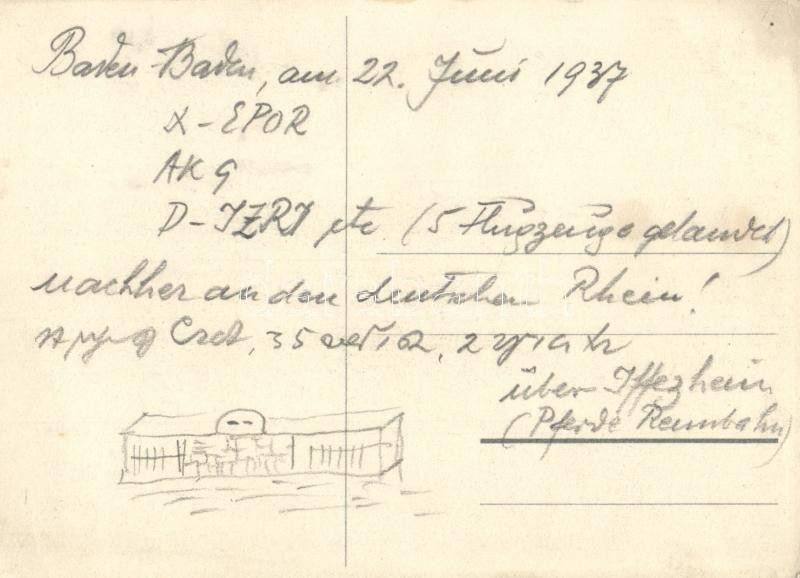 Baden-Baden, am 22. Juni 1937
X-EPOR
AK 9
D-IZRI etc (5 Flugzeuge gelandet)
nachher an den deutschen Rhein!
über Iffezheim
(Pferde Rennbahn)